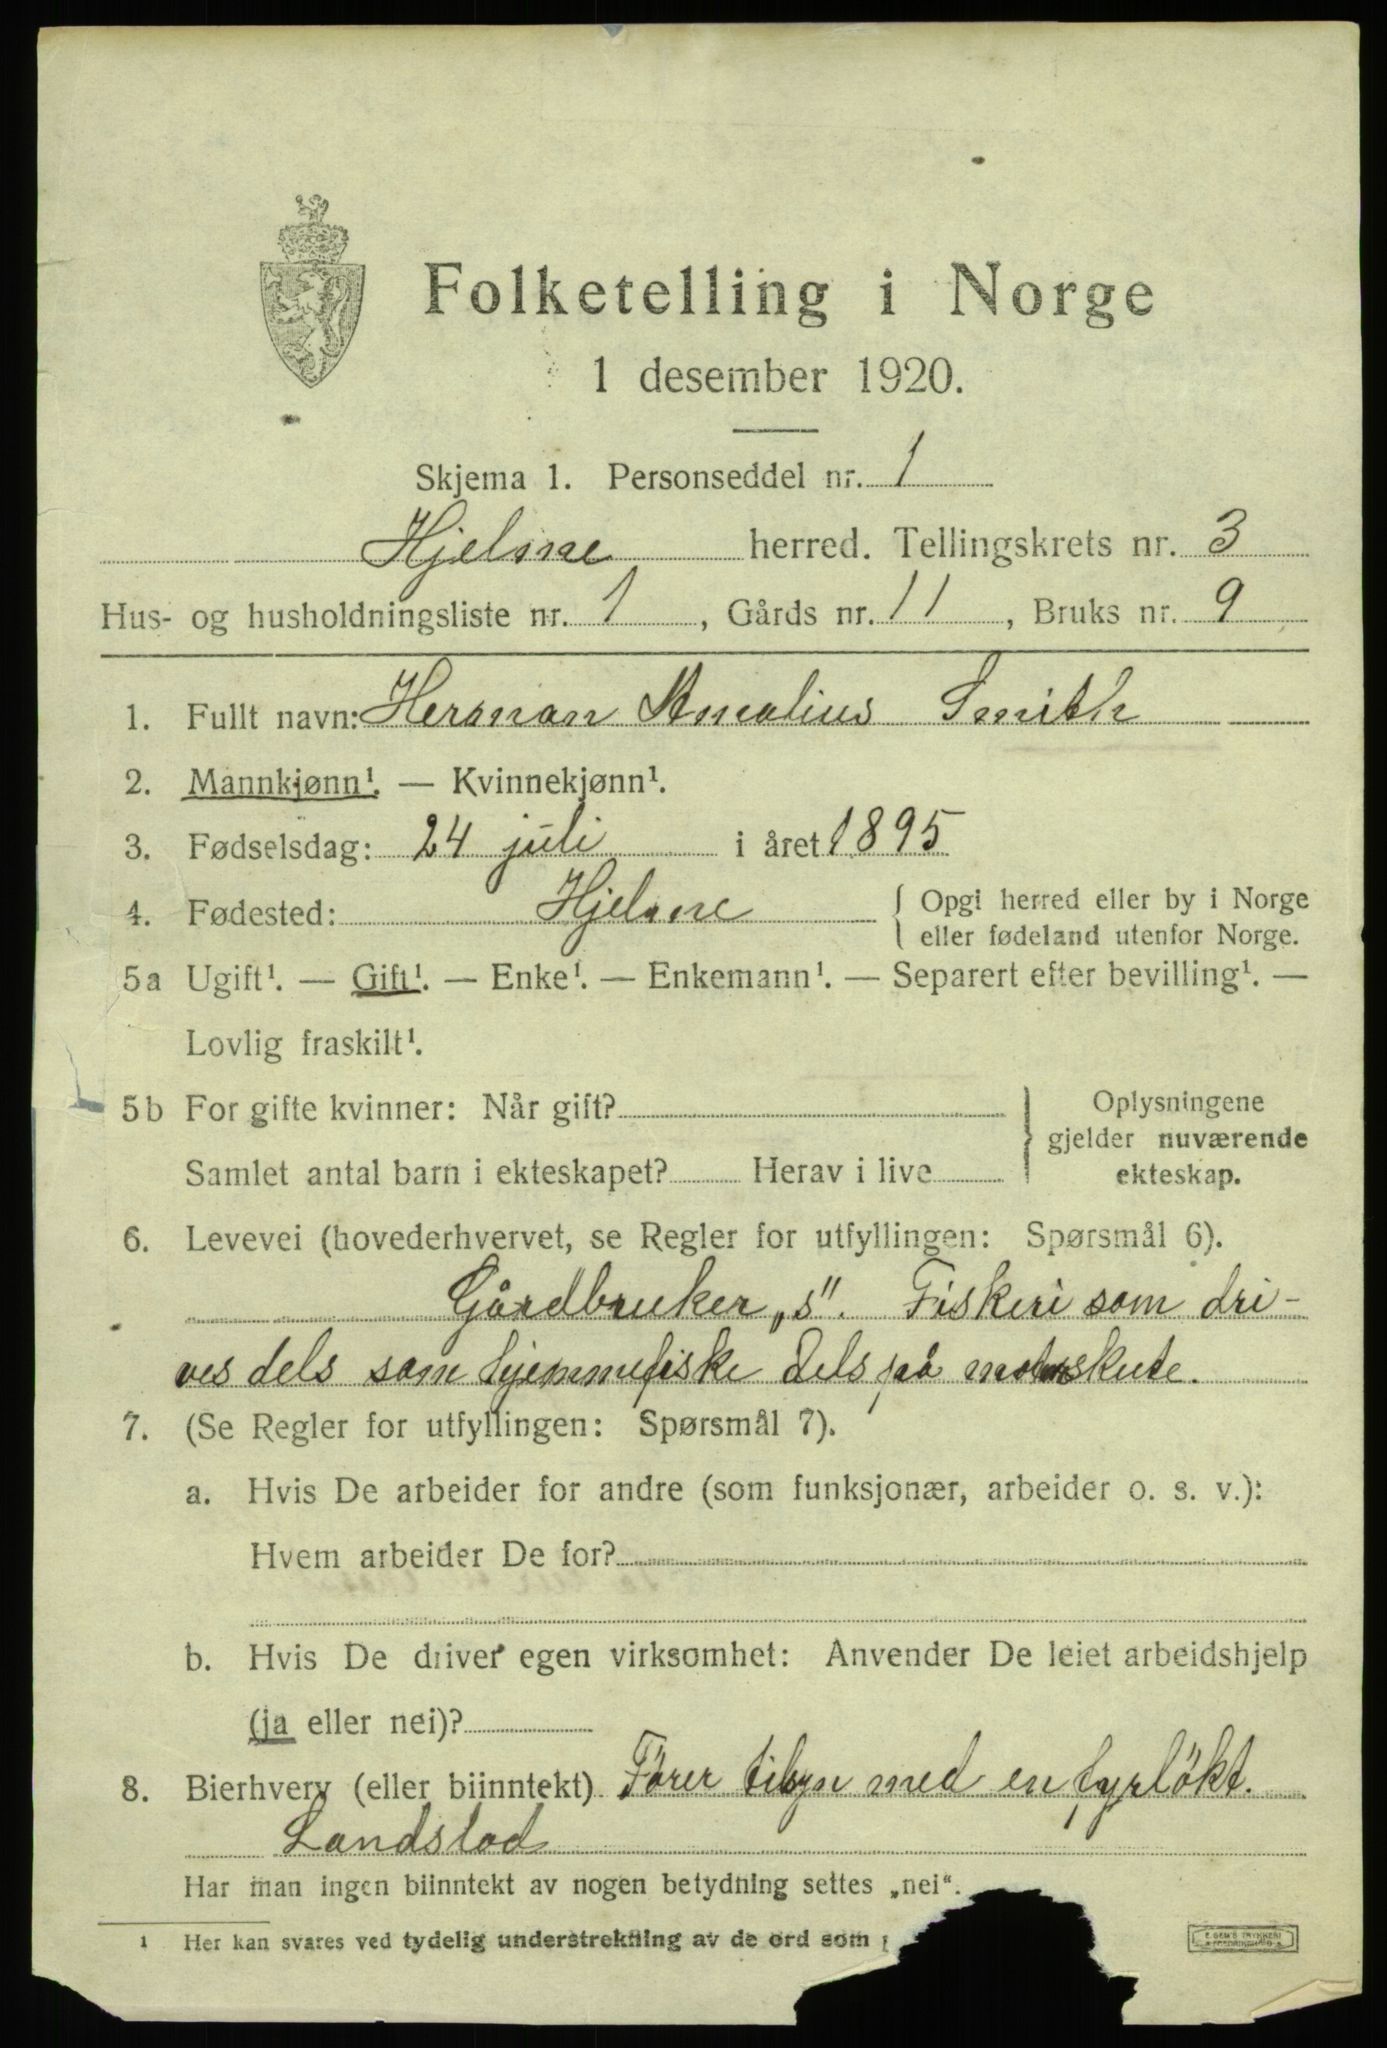 Folketelling i Norge
1 desember 1920.
Skjema 1. Personseddel nr. 1
Hjelme herred. Tellingskrets nr. 3
Hus- og husholdningsliste nr. 1, Gårds nr. 11, Bruks nr. 9
1. Fullt navn: Herman Amalius Smith
2. Mannkjønn¹. — Kvinnekjønn¹.
3. Fødselsdag: 24 juli i året 1895
4. Fødested: Hjelme { Opgi herred eller by i Norge
eller fødeland utenfor Norge.
5a Ugift¹. — Gift¹. — Enke¹. — Enkemann¹. — Separert efter bevilling¹. —
Lovlig fraskilt¹.
5b For gifte kvinner: Når gift? } Oplysningene
gjelder nuværende
Samlet antal barn i ekteskapet? Herav i live ekteskap.
6. Levevei (hovederhvervet, se Regler for utfyllingen: Spørsmål 6).
Gårdbruker „s". Fiskeri som dri-
ves dels som hjemmefiske dels på motorskute.
7. (Se Regler for utfyllingen: Spørsmål 7).
a. Hvis De arbeider for andre (som funksjonær, arbeider o. s. v.):
Hvem arbeider De for?
b. Hvis De driver egen virksomhet: Anvender De leiet arbeidshjelp
(ja eller nei)?
8. Bierhverv (eller biinntekt) Fører tilsyn med en fyrløkt.
Landslod
Har man ingen biinntekt av nogen betydning settes „nei".
1 Her kan svares ved tydelig understrekning av de ord som